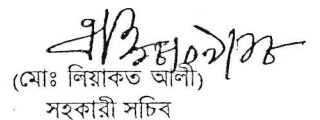 (মোঃ লিয়াকত আলী)
সহকারী সচিব